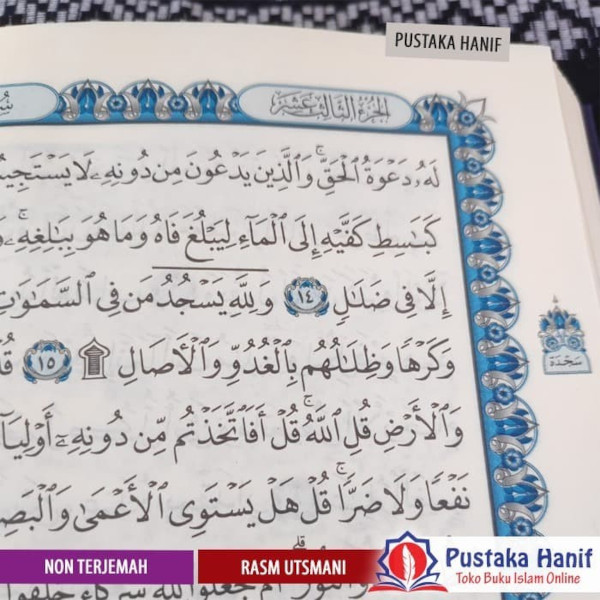 PUSTAKA HANIF
الجزء الثالث عشر
لَهُۥ دَعْوَةُ ٱلْحَقِّ ۖ وَٱلَّذِينَ يَدْعُونَ مِن دُونِهِۦ لَا
كَبَٰسِطِ كَفَّيْهِ إِلَى ٱلْمَآءِ لِيَبْلُغَ فَاهُ وَمَا هُوَ بِبَٰلِغِهِۦ ۚ
إِلَّا فِى ضَلَٰلٍ ١٤ وَلِلَّهِ يَسْجُدُ مَن فِى ٱلسَّمَٰوَٰتِ
وَكَرْهًا وَظِلَٰلُهُم بِٱلْغُدُوِّ وَٱلْءَاصَالِ ۩ ١٥
سجدة
وَٱلْأَرْضِ قُلِ ٱللَّهُ ۚ قُلْ أَفَٱتَّخَذْتُم مِّن دُونِهِۦٓ
نَفْعًا وَلَا ضَرًّا ۚ قُلْ هَلْ يَسْتَوِى ٱلْأَعْمَىٰ
NON TERJEMAH
RASM UTSMANI
Pustaka Hanif
Toko Buku Islam Online